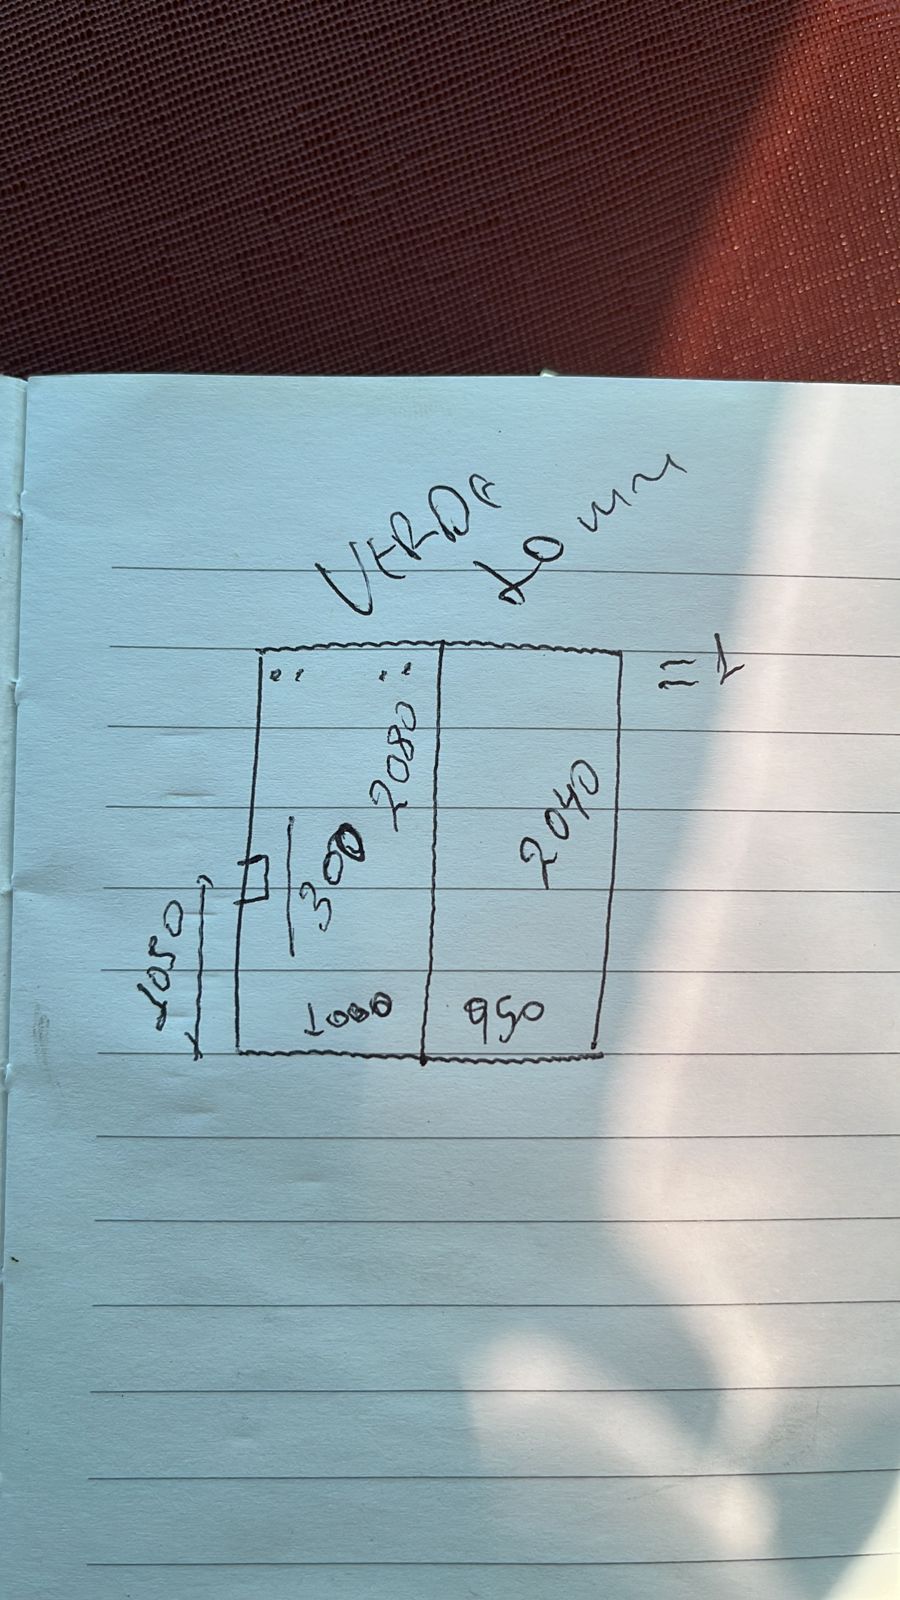 VERDE
10 mm
= 1
2080
2040
300
1050
1000
950